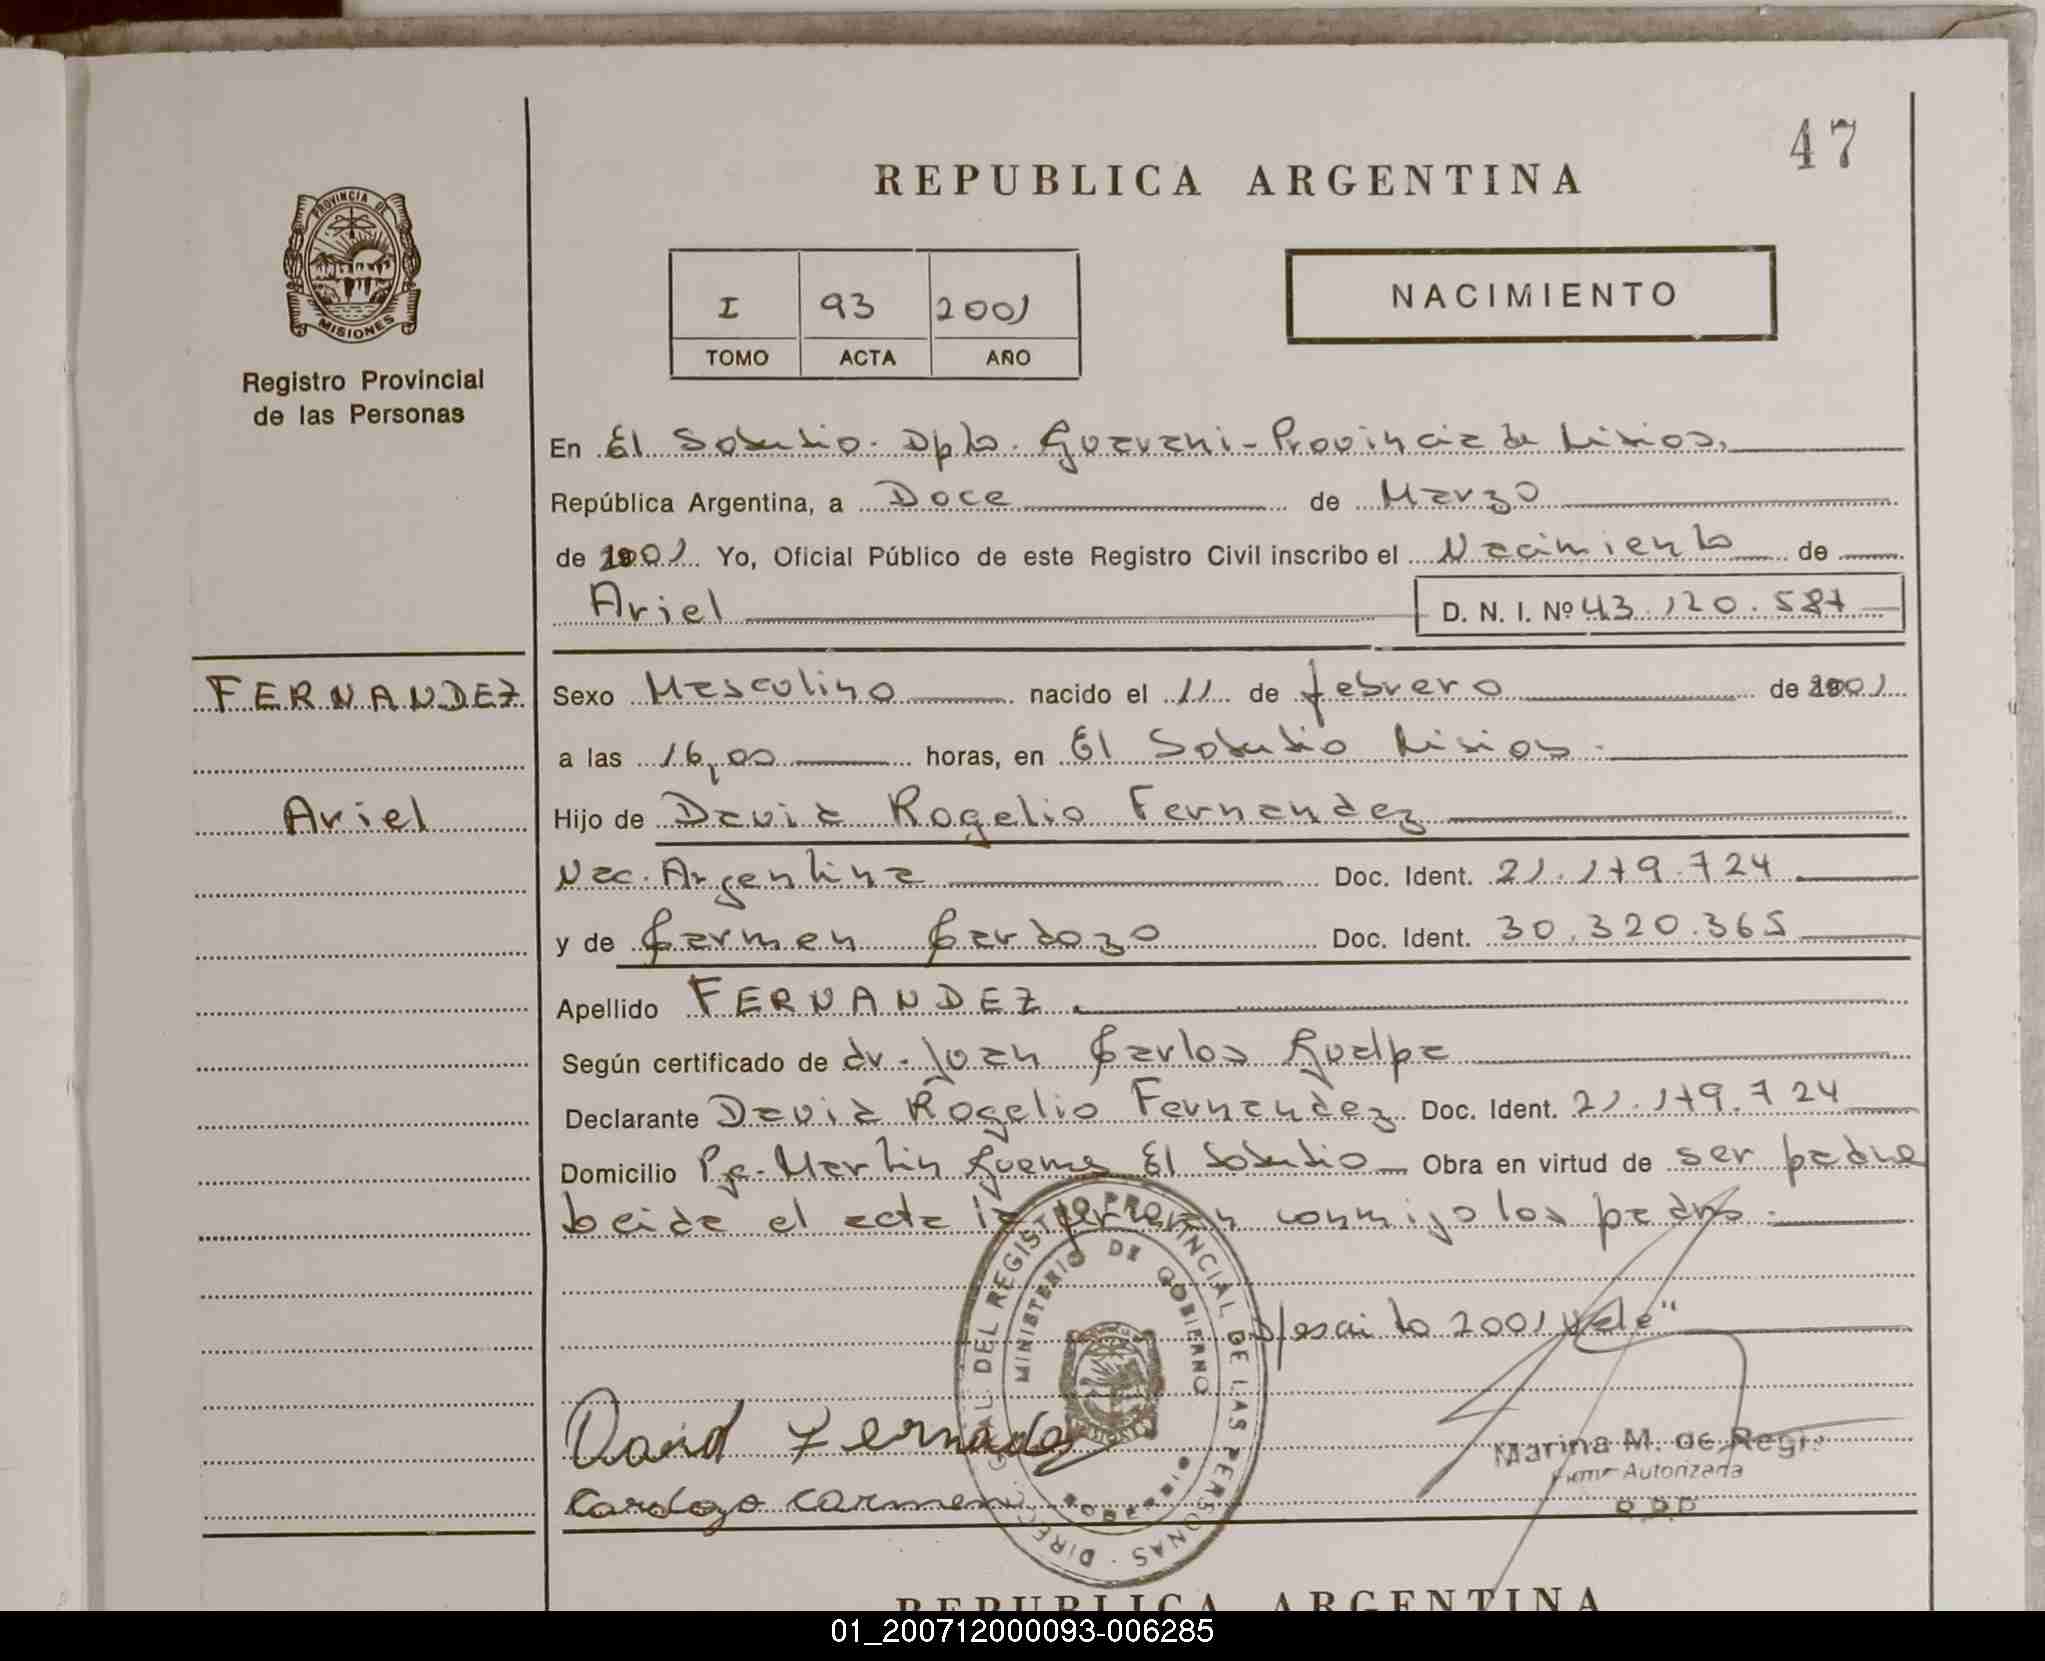 47
REPUBLICA ARGENTINA
PROVINCIA DE
MISIONES
Registro Provincial
de las Personas
I 93 2001
TOMO ACTA AÑO
NACIMIENTO
En El Soberbio. Dpto. Guarani - Provincia de Misiones.
República Argentina, a Doce de Marzo
de 2001 Yo, Oficial Público de este Registro Civil inscribo el Nacimiento de
Ariel D. N. I. Nº 43.120.587
FERNANDEZ
Sexo Masculino nacido el 11 de febrero de 2001
a las 16,00 horas, en El Soberbio Misiones.
Ariel
Hijo de David Rogelio Fernandez
Nac. Argentina Doc. Ident. 21.179.724
y de Carmen Cardozo Doc. Ident. 30.320.365
Apellido FERNANDEZ
Según certificado de dr. Juan Carlos Gualpa
Declarante David Rogelio Fernandez Doc. Ident. 21.179.724
Domicilio Pje. Martin Guemes El Soberbio Obra en virtud de ser padre
Leida el acta la firman conmigo los padres.
S/escrito 2001 Vale"
DIREC. GRAL. DEL REGISTRO PROVINCIAL DE LAS PERSONAS
MINISTERIO DE GOBIERNO
David Fernandez
Cardozo Carmen
Marina M. de Regis
Firma Autorizada
R.P.P
REPUBLICA ARGENTINA
01_200712000093-006285